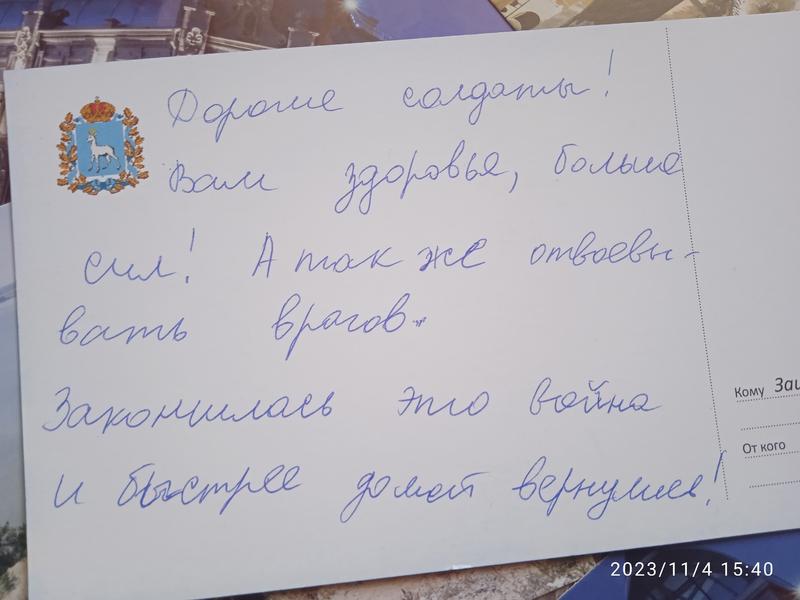 Дорогие солдаты!
Вам здоровья, больше
сил! А так же отвоевы-
вать врагов.
Закончилась это война
и быстрее домой вернулись!
Кому
От кого
2023/11/4 15:40